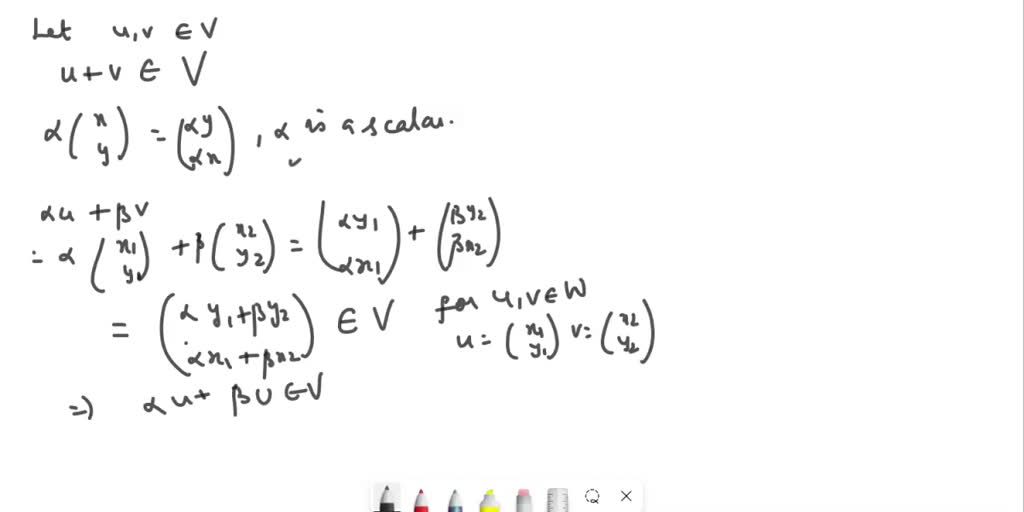 Let u,v ∈ V
u+v ∈ V
α(x y) = (αy αx), α is a scalar.
αu + βv
= α(x1 y1) + β(x2 y2) = (αy1 αx1) + (βy2 βx2)
= (αy1+βy2 αx1+βx2) ∈ V for u,v ∈ W
u = (x1 y1) v = (x2 y2)
⇒ αu + βv ∈ V